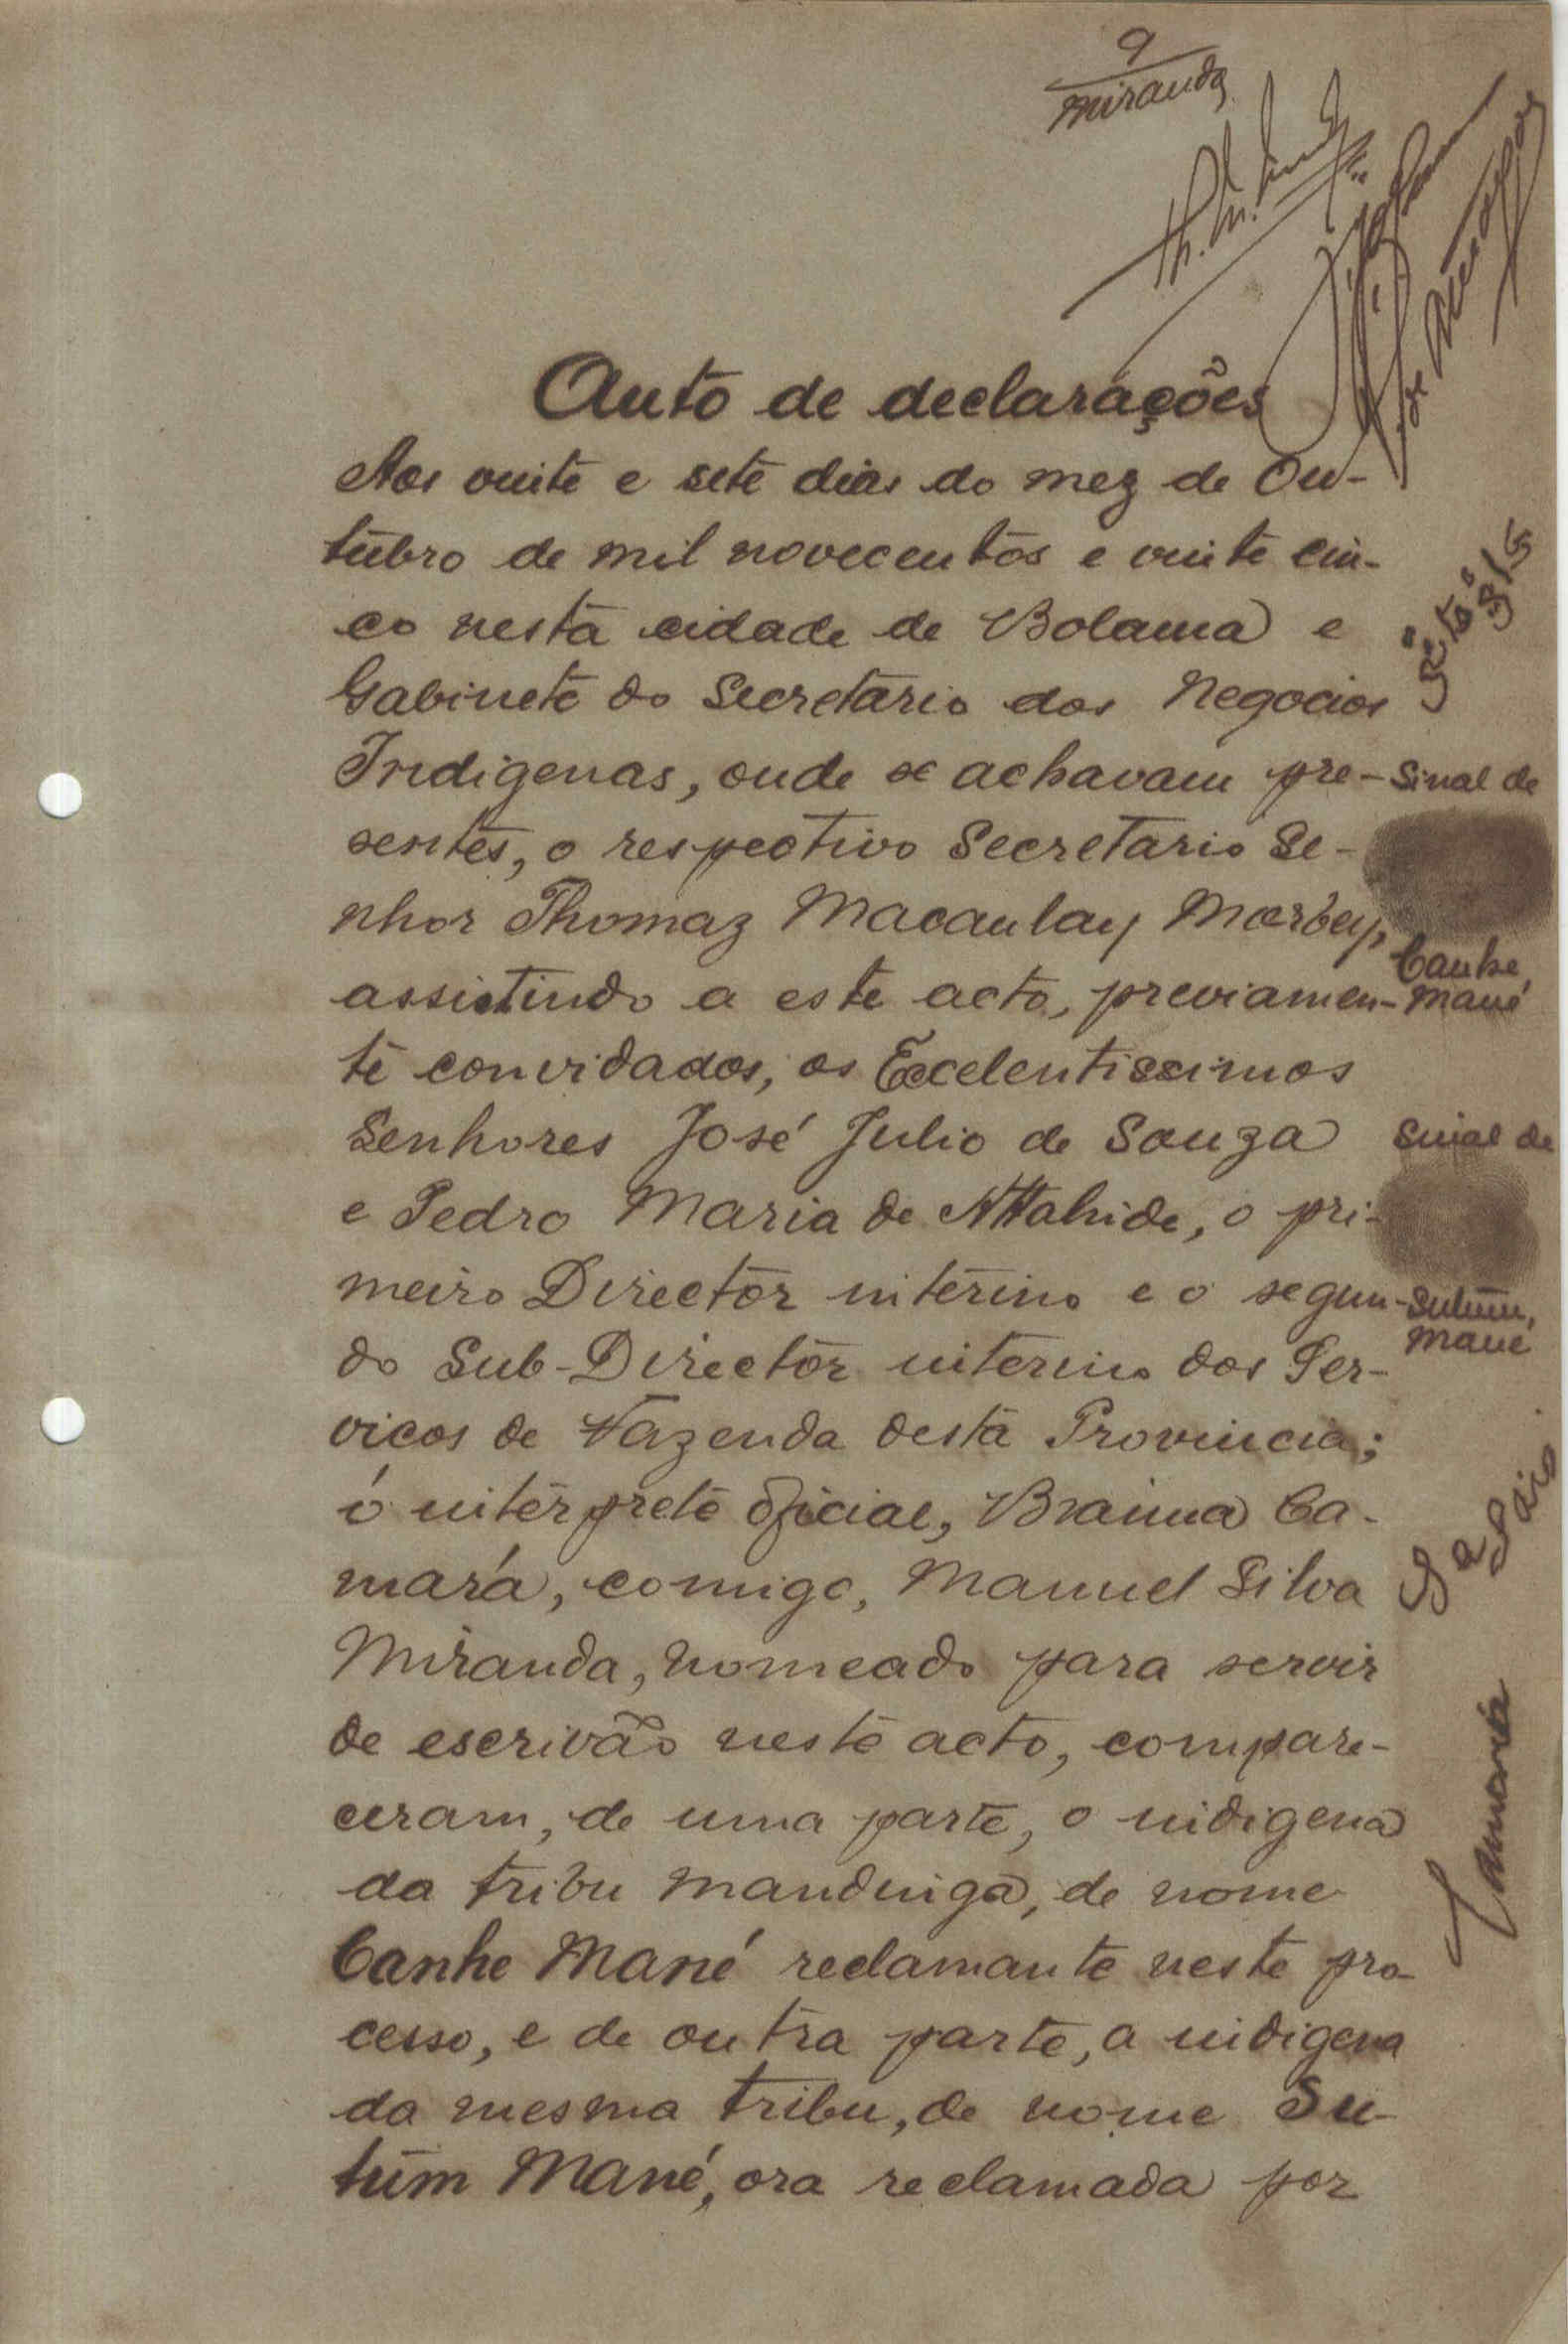 9
Miranda
Auto de declarações
Aos vinte e sete dias do mez de Ou-
tubro de mil novecentos e vinte cin-
co nesta cidade de Bolama e
Gabinete do Secretario dos Negocios
Indigenas, onde se achavam pre-
sentes, o respectivo Secretario Se-
nhor Thomaz Macaulay Marbey,
assistindo a este acto, previamen-
te convidados, os Excelentissimos
Senhores José Julio de Souza
e Pedro Maria de Attahide, o pri-
meiro Director interino e o segun-
do Sub-Director interino dos Ser-
vicos de Fazenda desta Provincia;
o interprete oficial, Braima Ca-
mará, comigo, Manuel Silva
Miranda, nomeado para servir
de escrivão neste acto, compare-
ceram, de uma parte, o indigena
da tribu mandinga, de nome
Canhe Mané reclamante neste pro-
cesso, e de outra parte, a indigena
da mesma tribu, de nome Su-
tum Mané, ora reclamada por
Sinal de
Canhe
Mané
Sinal de
Sutum,
Mané